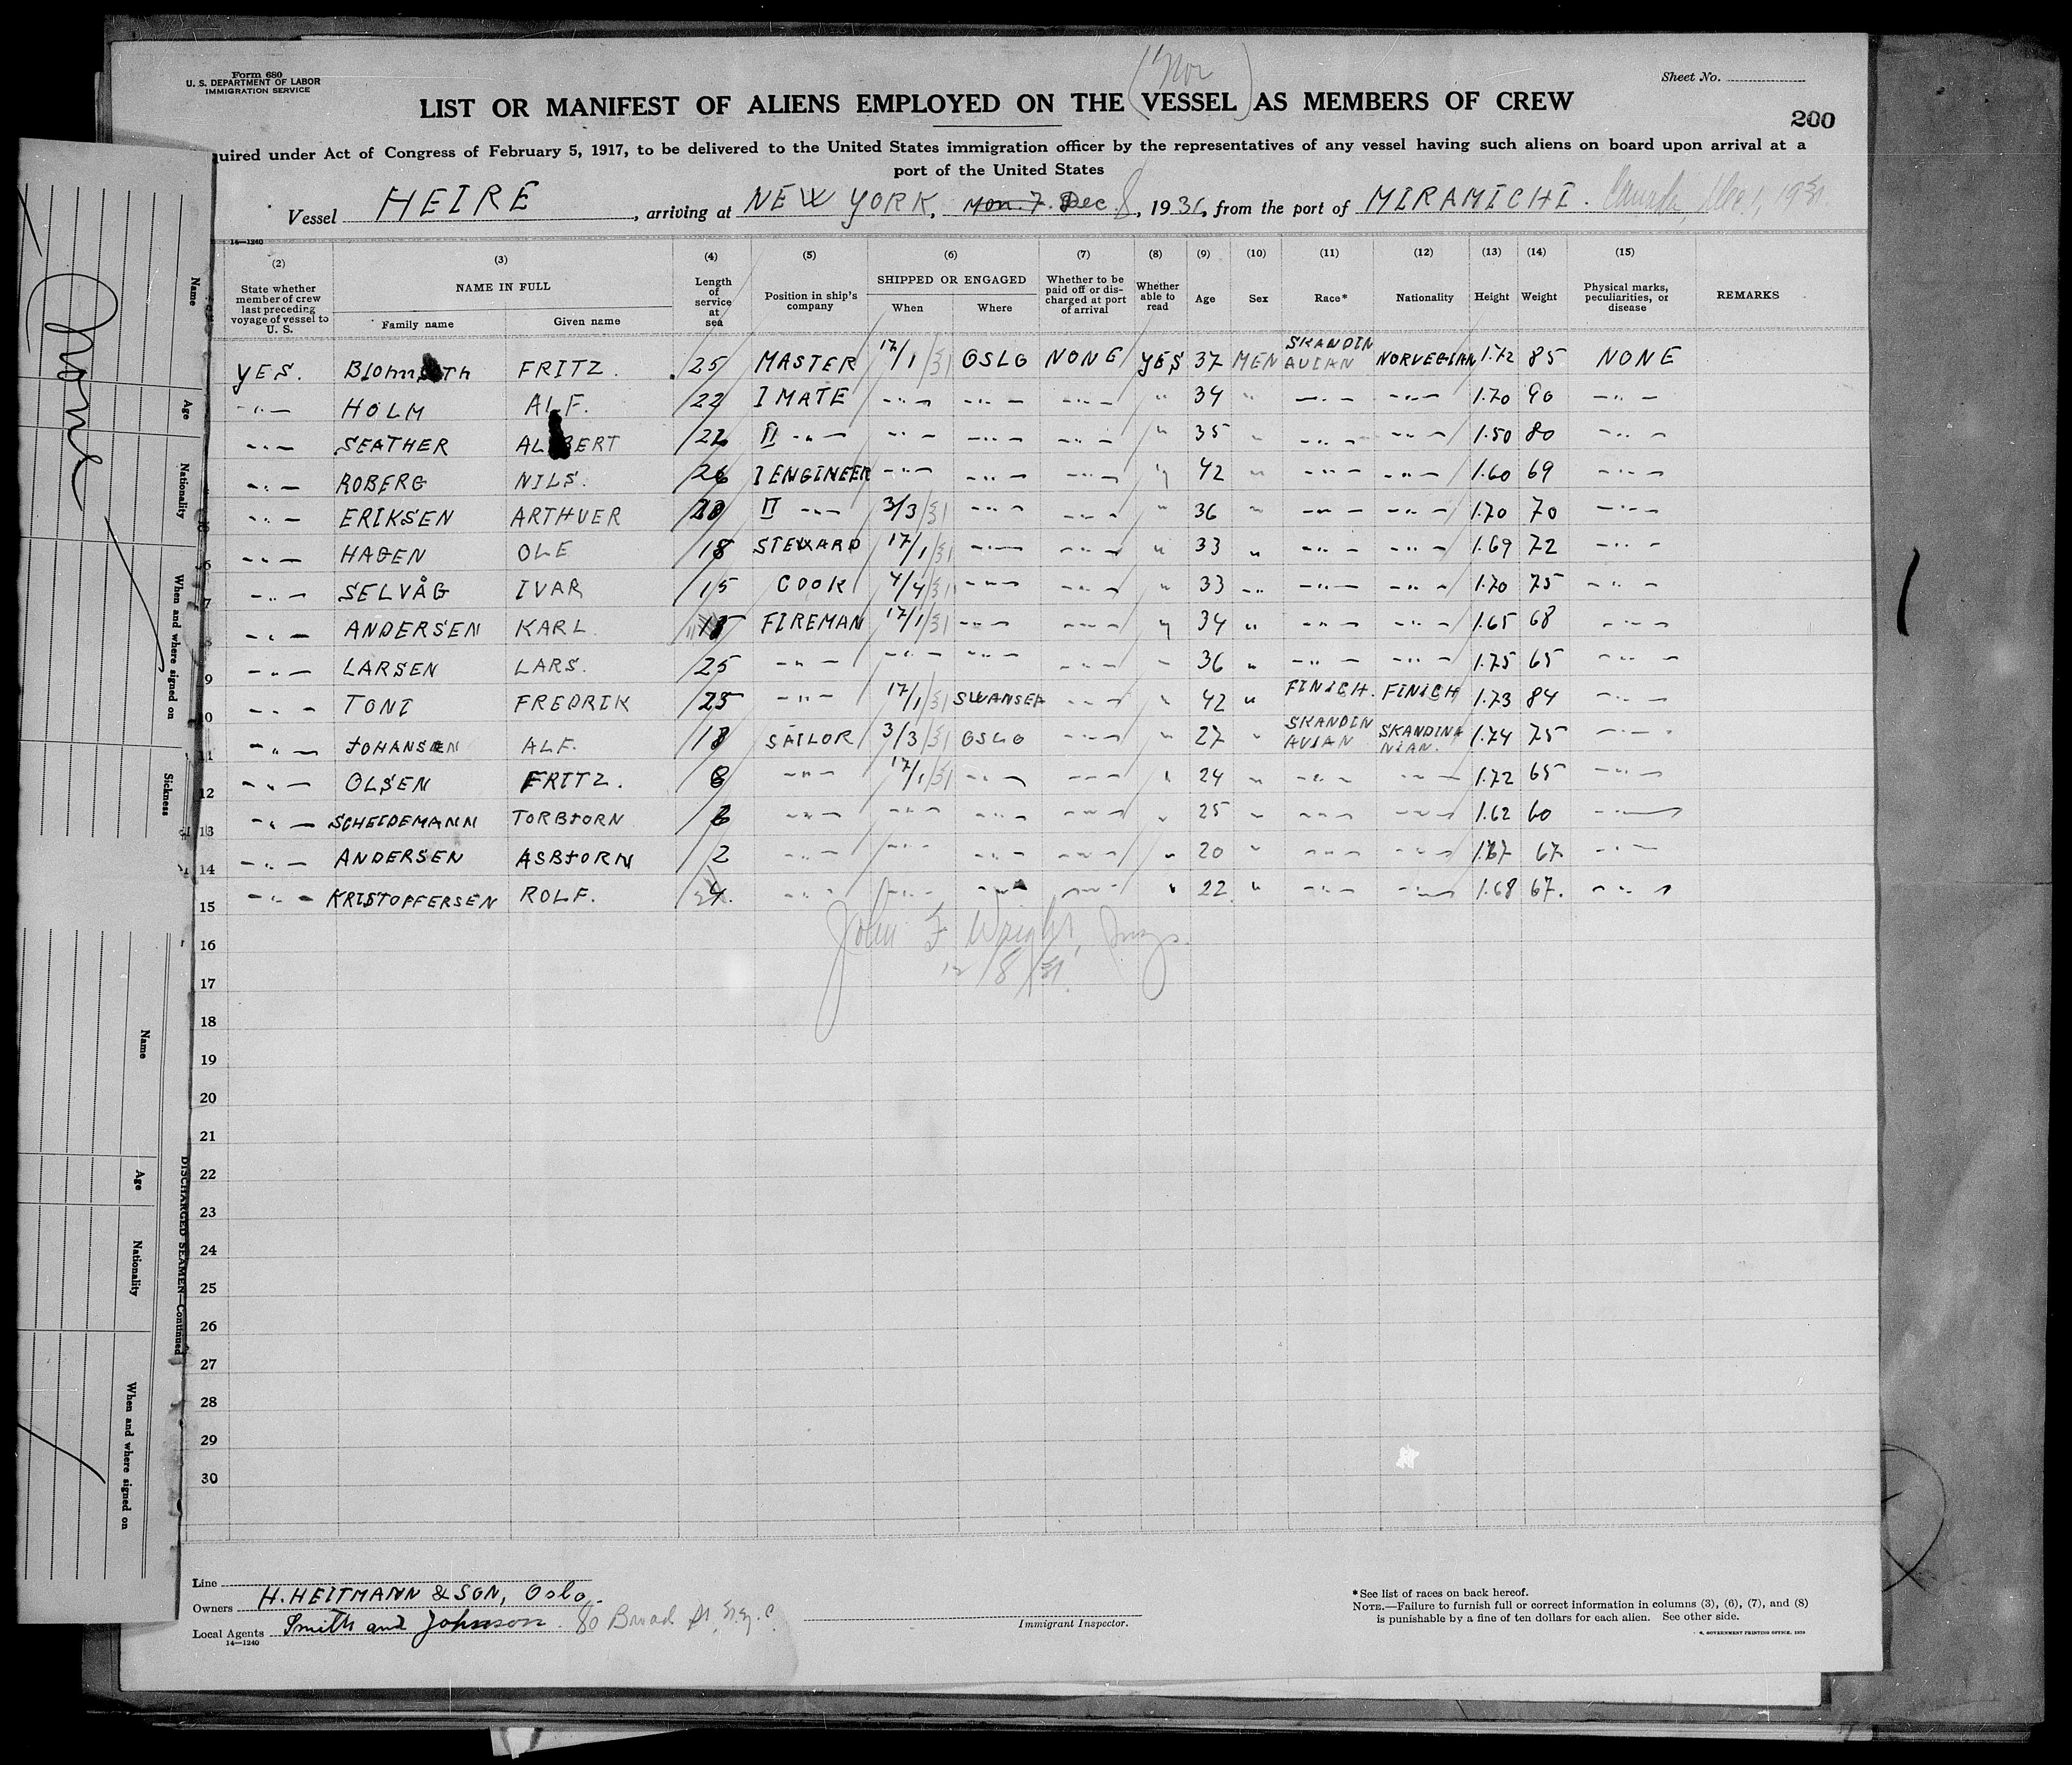 (Nor)
Form 680
U. S. DEPARTMENT OF LABOR
IMMIGRATION SERVICE
Sheet No.
LIST OR MANIFEST OF ALIENS EMPLOYED ON THE VESSEL AS MEMBERS OF CREW
200
quired under Act of Congress of February 5, 1917, to be delivered to the United States immigration officer by the representatives of any vessel having such aliens on board upon arrival at a
port of the United States
Vessel HEIRE, arriving at NEW YORK, Mon. 7. Dec 8, 1931, from the port of MIRAMICHI. Canada, Dec. 1, 1931
14—1240
(2) (3) (4) (5) (6) (7) (8) (9) (10) (11) (12) (13) (14) (15)
State whether member of crew last preceding voyage of vessel to U. S. NAME IN FULL Family name Given name Length of service at sea Position in ship's company SHIPPED OR ENGAGED When Where Whether to be paid off or discharged at port of arrival Whether able to read Age Sex Race* Nationality Height Weight Physical marks, peculiarities, or disease REMARKS
YES. FRITZ. 25 MASTER 17/1 31 OSLO NONE YES 37 MEN SKANDINAVIAN NORVEGIAN 1.72 85 NONE
-"- HOLM ALF. 22 I MATE -"- -"- -"- " 34 " -"- -"- 1.70 90 -"-
-"- SEATHER ALBERT 22 II -"- -"- -"- -"- " 35 " -"- -"- 1.50 80 -"-
-"- ROBERG NILS. 26 I ENGINEER -"- -"- -"- " 42 " -"- -"- 1.60 69 -"-
-"- ERIKSEN ARTHUER 20 II -"- 3/3 31 -"- -"- " 36 " -"- -"- 1.70 70 -"-
6 -"- HAGEN OLE 18 STEWARD 17/1 31 -"- -"- " 33 " -"- -"- 1.69 72 -"-
7 -"- SELVÅG IVAR 15 COOK 4/4 31 -"- -"- " 33 " -"- -"- 1.70 75 -"-
8 -"- ANDERSEN KARL 18 FIREMAN 17/1 31 -"- -"- " 34 " -"- -"- 1.65 68 -"-
9 -"- LARSEN LARS. 25 -"- -"- -"- -"- " 36 " -"- -"- 1.75 65 -"-
10 -"- TONI FREDRIK 25 -"- 17/1 31 SWANSEA -"- " 42 " FINICH. FINICH 1.73 84 -"-
11 -"- JOHANSEN ALF. 18 SAILOR 3/3 31 OSLO -"- " 27 " SKANDINAVIAN SKANDINANIAN. 1.74 75 -"-
12 -"- OLSEN FRITZ. 8 -"- 17/1 31 -"- -"- " 24 " -"- -"- 1.72 65 -"-
13 -"- SCHEIDEMANN TORBJORN 6 -"- -"- -"- -"- " 25 " -"- -"- 1.62 60 -"-
14 -"- ANDERSEN ASBJORN 2 -"- -"- -"- -"- " 20 " -"- -"- 1.67 67 -"-
15 -"- KRISTOFFERSEN ROLF. 4. -"- -"- -"- -"- " 22 " -"- -"- 1.68 67. -"-
16 John F Wright, Insp.
17 12/8/31.
18
19
20
21
22
23
24
25
26
27
28
29
30
Line
Owners H. HEITMANN & SON, Oslo.
Local Agents Smith and Johnson. 80 Broad St. N.Y.C
14—1240
Immigrant Inspector.
*See list of races on back hereof.
NOTE.—Failure to furnish full or correct information in columns (3), (6), (7), and (8)
is punishable by a fine of ten dollars for each alien. See other side.
GOVERNMENT PRINTING OFFICE
None
Name
Age
Nationality
When and where signed on
Sickness
DISCHARGED SEAMEN—Continued
Name
Age
Nationality
When and where signed on